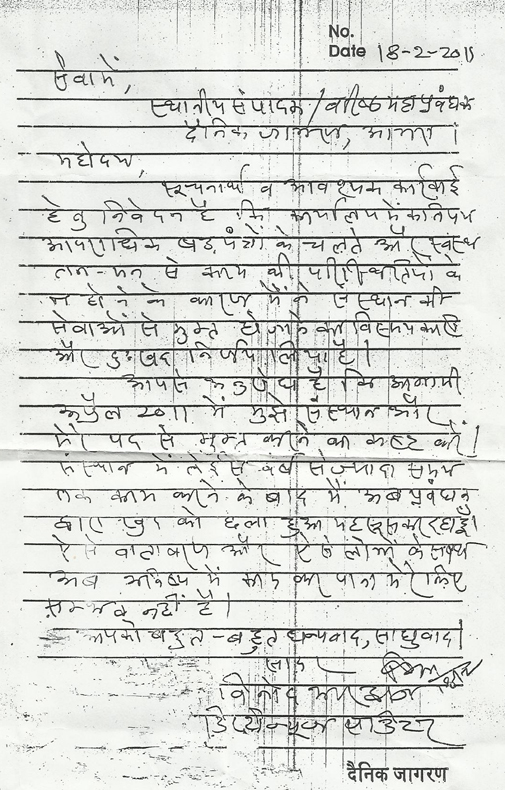 No.
Date 18-2-2011
सेवा में,
स्थानीय संपादक / वरिष्ठ महाप्रबंधक
दैनिक जागरण, आगरा ।
महोदय,
सूचनार्थ व आवश्यक कार्रवाई
हेतु निवेदन है कि कार्यालय में कतिपय
आपराधिक षड़यंत्रों के चलते और स्वस्थ
तन-मन से काम की परिस्थितियों के
न होने के कारण मैंने संस्थान की
सेवाओं से मुक्त हो जाने का विस्मयकारी
और दुःखद निर्णय लिया है ।
आपसे अनुरोध है कि आगामी
अप्रैल 2011 में मुझे संस्थान और
मेरे पद से मुक्त करने का कष्ट करें ।
संस्थान में तेईस वर्ष से ज्यादा समय
तक काम करने के बाद मैं अब प्रबंधन
द्वारा खुद को छला हुआ महसूस कर रहा हूँ ।
ऐसे वातावरण और ऐसे लोगों के साथ
अब भविष्य में काम कर पाना मेरे लिए
सम्भव नहीं है ।
आपको बहुत-बहुत धन्यवाद, साधुवाद ।
सादर
विनोद भारद्वाज
डिप्टी न्यूज एडिटर
दैनिक जागरण